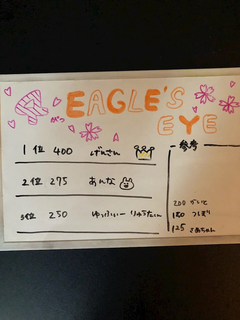 がっ EAGLE'S
EYE
1位 400 げんさん
2位 275 あんな
3位 250 ゆっふぃー りゅうたくん
参考
200 かいと
180 つしま
125 さあちゃん